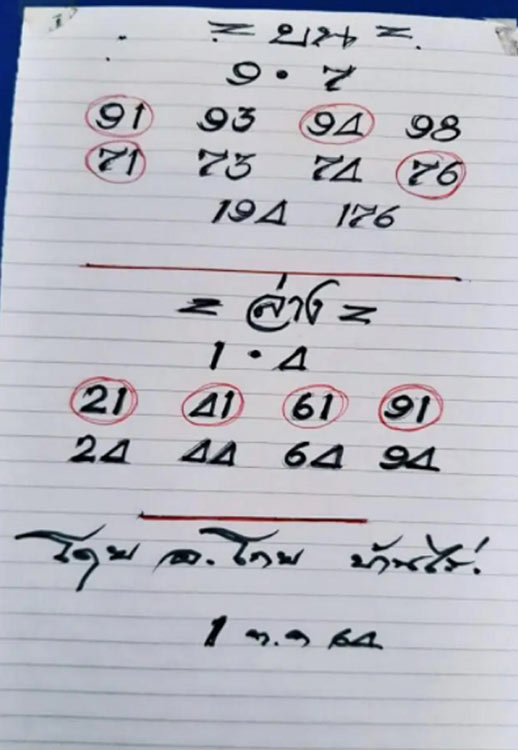 = บน =
9 · 7
91 93 94 98
71 73 74 76
194 176
= ล่าง =
1 · 4
21 41 61 91
24 44 64 94
โดย อ. โกย บ้านไร่.
1 ต.ค 64